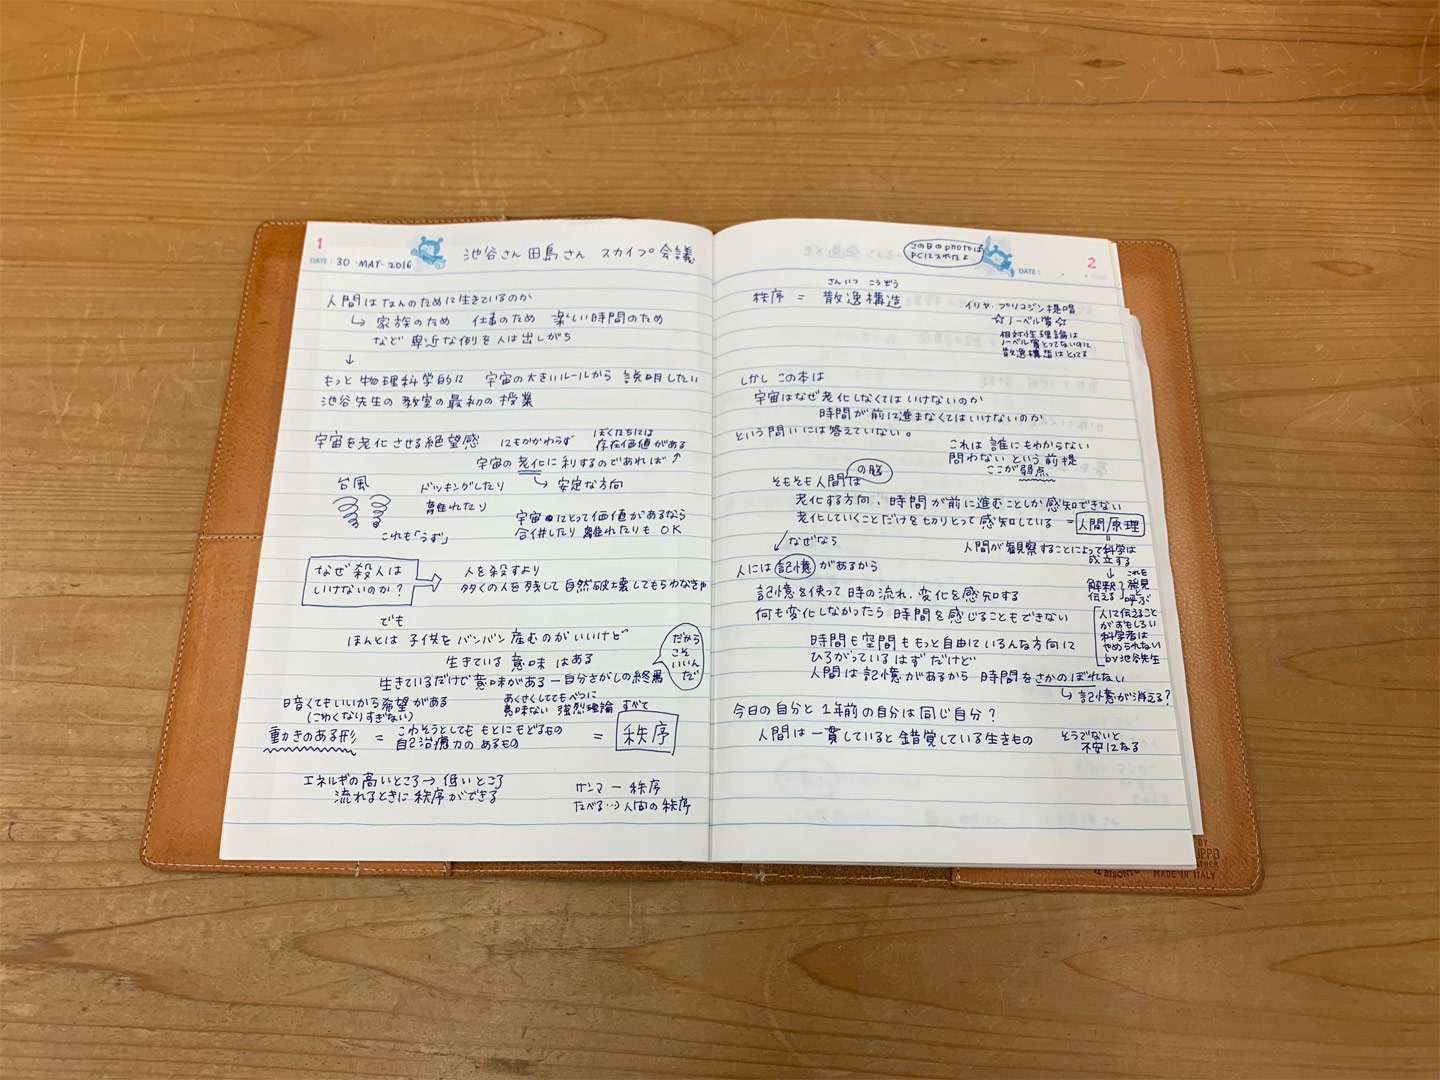 1
DATE: 30・MAY・2016
池谷さん 田島さん スカイプ会議
人間はなんのために生きているのか
↳ 家族のため 仕事のため 楽しい時間のため
など 卑近な例を人は出しがち
↓
もっと 物理科学的に 宇宙の大きいルールから 説明したい
池谷先生の 教室の最初の授業
宇宙を老化させる絶望感 にもかかわらず ぼくたちには
存在価値がある
宇宙の老化に利するのであれば↑
↳ 安定な方向
台風
ドッキングしたり
離れたり
これも「うず」
宇宙にとって価値があるなら
合併したり 離れたりも OK
なぜ殺人は
いけないのか?
人を殺すより
多くの人を残して自然破壊してもらわなきゃ
でも
ほんとは 子供をバンバン産むのがいいけど
生きている意味はある
生きているだけで意味がある─自分さがしの終焉
だから
こそ
いいん
だ
暗くてもいいから希望がある
(こわくなりすぎない)
あくせくしてもべつに
意味ない 強烈理論 すべて
動きのある形 = こわそうとしても もとにもどるもの
自己治癒力のあるもの
= 秩序
エネルギの高いところ→低いところ
流れるときに秩序ができる
サンマ ─ 秩序
たべる…→人間の秩序
この日のphotoは
PCに入れたよ
DATE: ・ ・
2
さんいつ こうぞう
秩序 = 散逸構造
イリヤ・プリゴジン提唱
☆ノーベル賞☆
相対性理論は
ノーベル賞とってないのに
散逸構造はとってる
しかし この本は
宇宙はなぜ老化しなくてはいけないのか
時間が前に進まなくてはいけないのか
という問いには答えていない。
これは誰にもわからない
問わないという前提
ここが弱点
そもそも人間は の脳
老化する方向、時間が前に進むことしか感知できない
老化していくことだけを切りとって感知している =人間原理
なぜなら
人間が観察することによって科学は
成立する
人には記憶があるから
↓ これを
解釈 発見
伝える と
呼ぶ
記憶を使って時の流れ、変化を感知する
何も変化しなかったら時間を感じることもできない
人に伝えること
がおもしろい
科学者は
やめられない
by池谷先生
時間も空間ももっと自由にいろんな方向に
ひろがっているはずだけど
人間は記憶があるから 時間をさかのぼれない
↳ 記憶が消える?
今日の自分と1年前の自分は同じ自分?
人間は一貫していると錯覚している生きもの
そうでないと
不安になる
BY
MADE IN ITALY
IL BISONTE